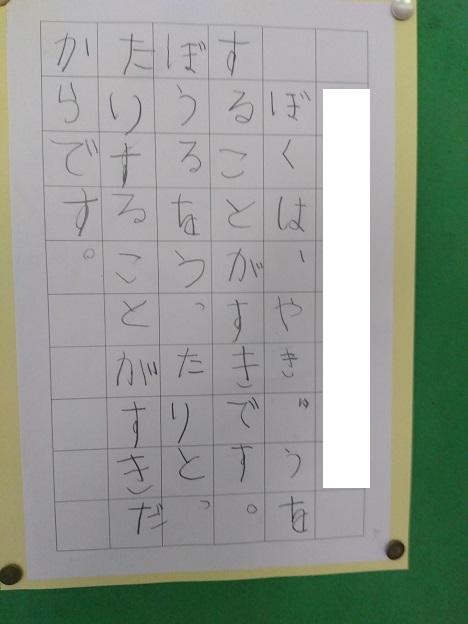 ぼくは、やきゅうを
することがすきです。
ぼうるをうったりとっ
たりすることがすきだ
からです。